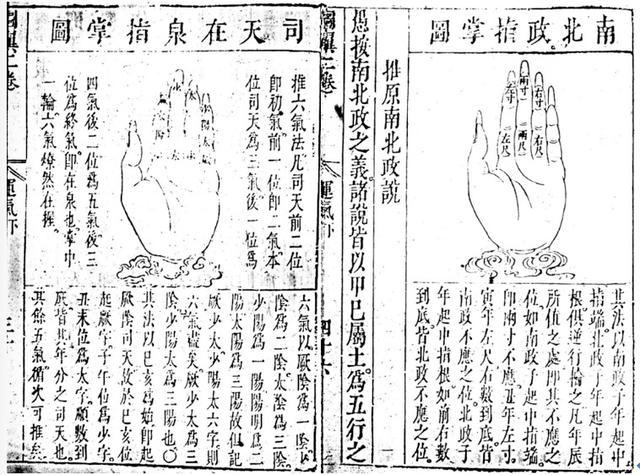 南北政指掌圖
左寸
兩寸
右寸
左尺
兩尺
右尺
其法以南政子年起中
指端北政子年起中指
根俱逆行輪之凡年辰
所值之處即其不應之
位如南政子起中指端
即兩寸不應丑年左寸
寅年左尺右數到底皆
南政不應之位北政子
年起中指根如前右數
到底皆北政不應之位
推原南北政說
愚按南北政之義諸說皆以甲巳屬土爲五行之
圖翼二卷
運氣下
四十六
司天在泉指掌圖
推六氣法凡司天前二位
即初氣前一位即二氣本
位司天爲三氣後一位爲
四氣後二位爲五氣後三
位爲終氣即在泉也掌中
一輪六氣燎然在握
六氣以厥陰爲一陰少
陰爲二陰太陰爲三陰
少陽爲一陽陽明爲二
陽太陽爲三陽故但記
厥少太少陽太六字則
六氣盡矣厥少太爲三
陰少陽太爲三陽也○
其法以巳亥爲始即起
厥陰司天故於巳亥位
起厥字子午位爲少字
丑未位爲太字順數到
底皆其年分之司天也
其餘五氣循次可推矣
圖翼二卷
運氣下